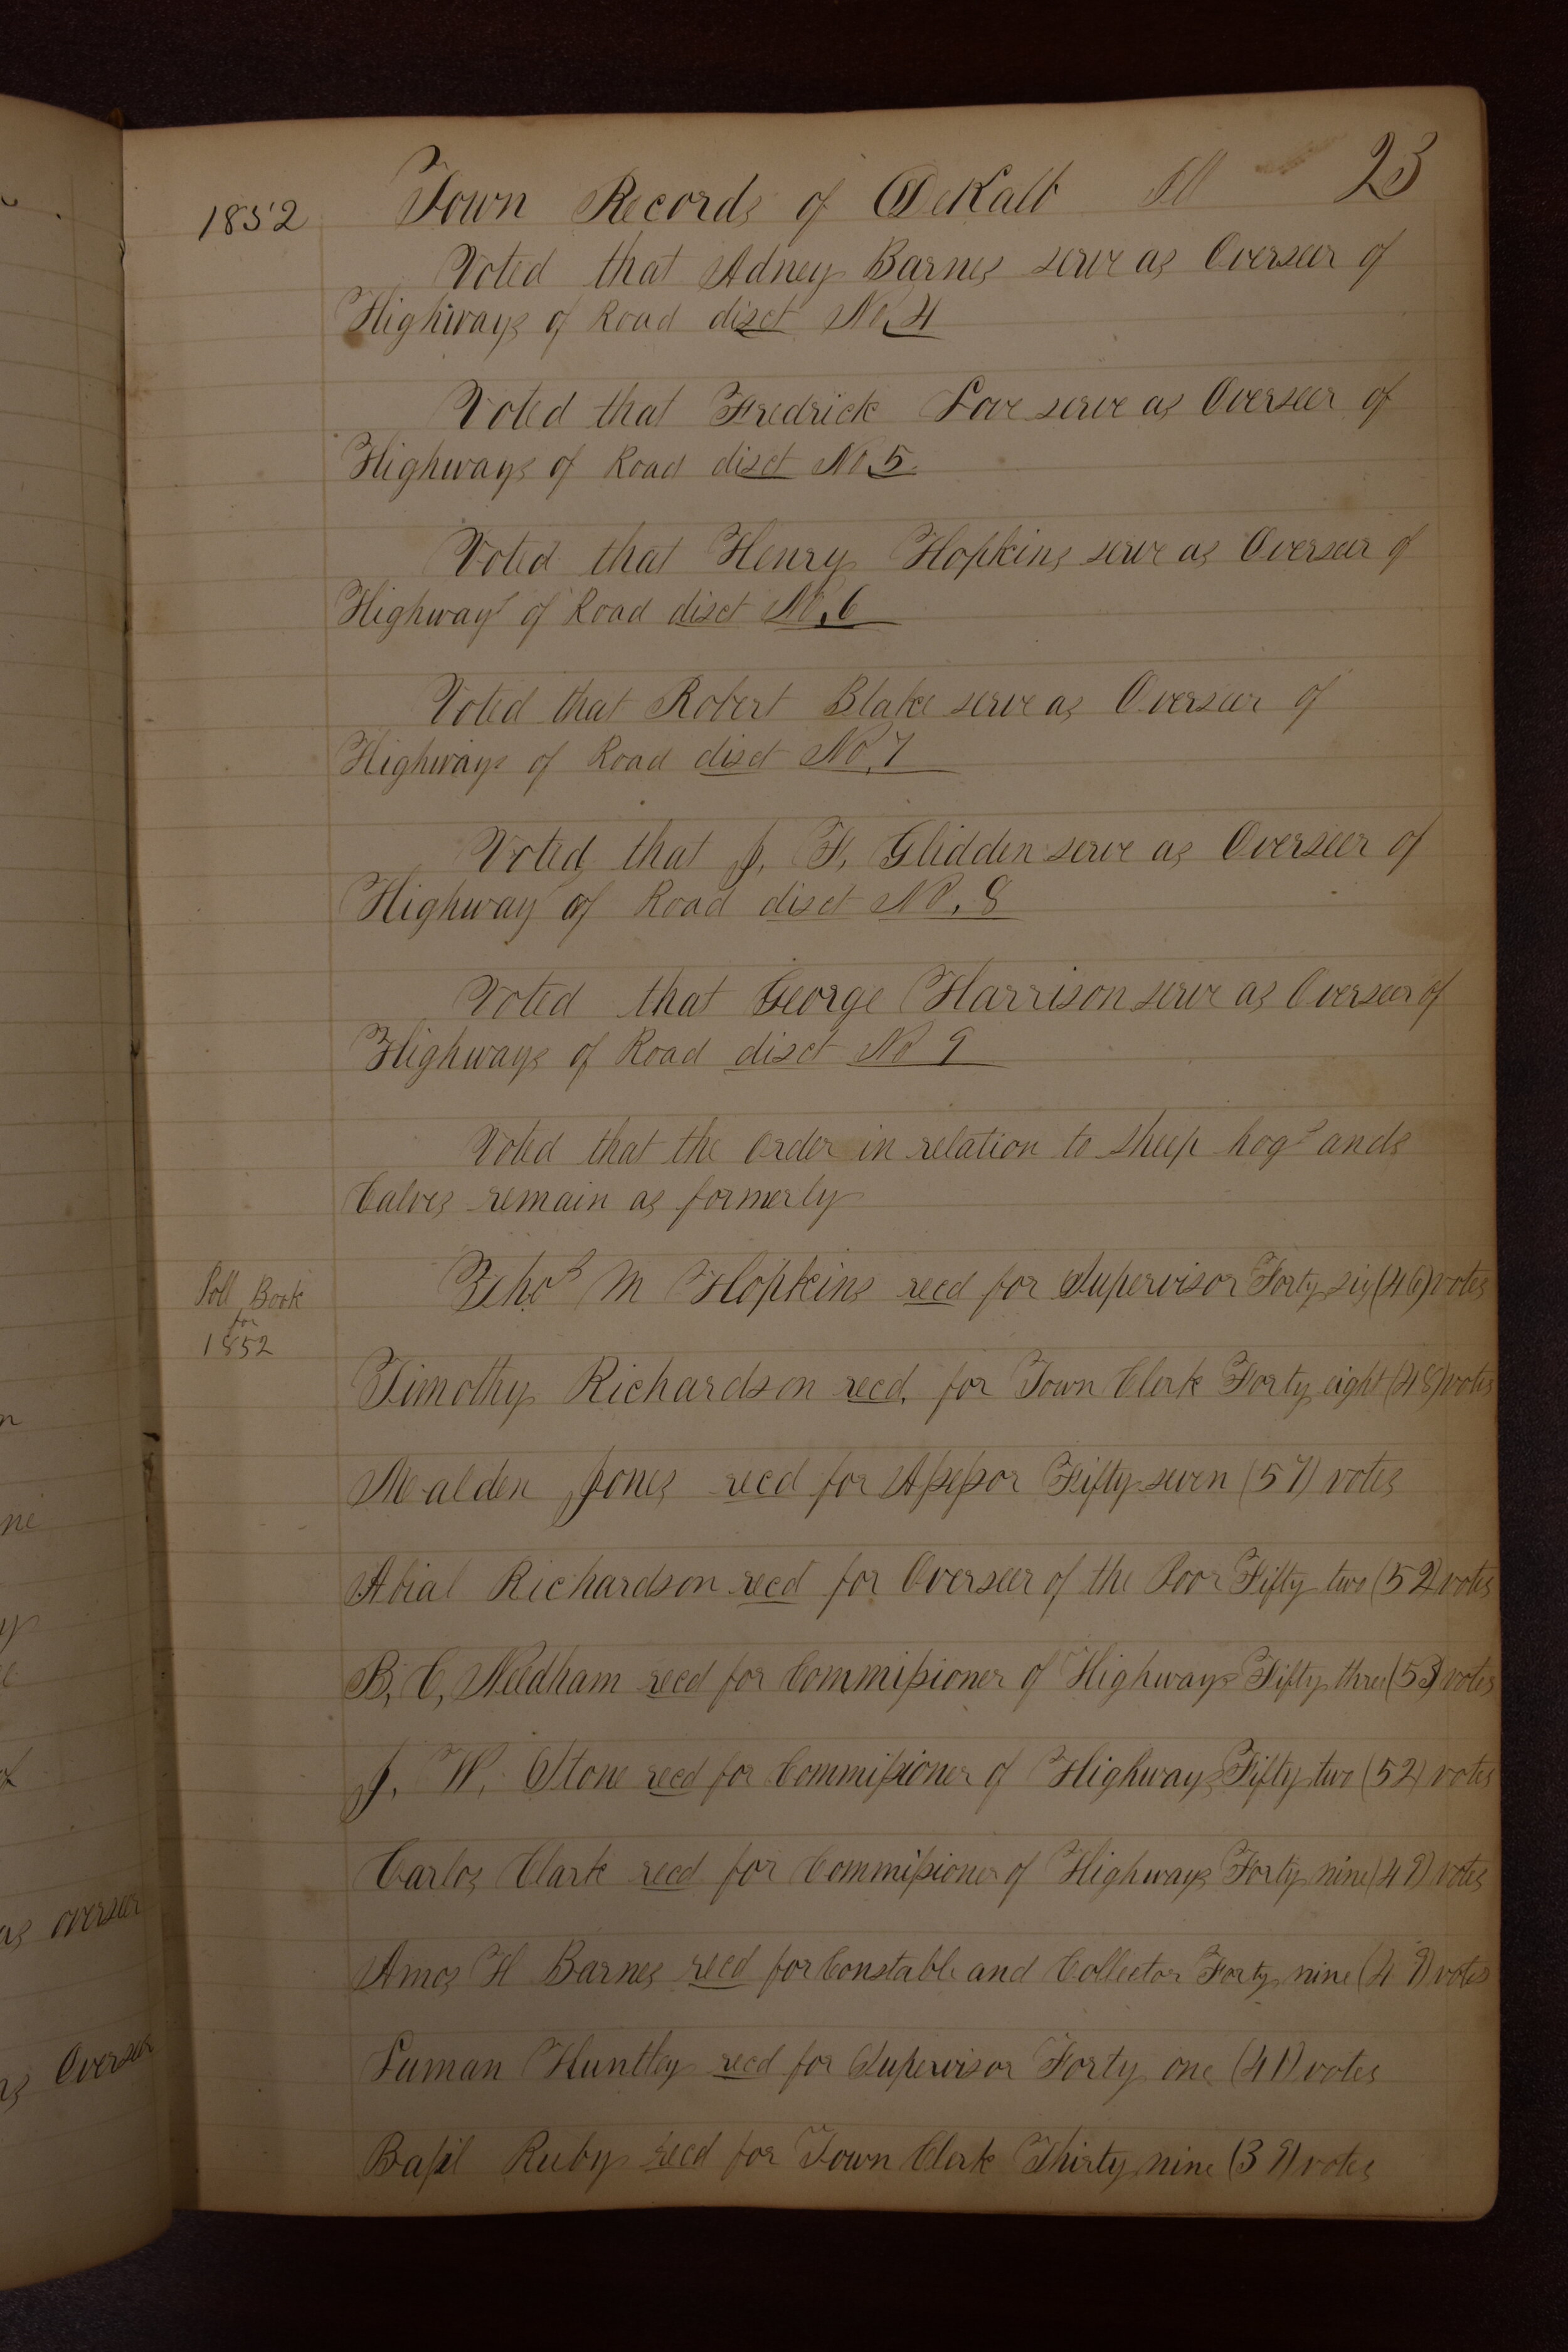 1852 Town Records of DeKalb Ill 23
Voted that Adney Barnes serve as Overseer of
Highways of Road disct No. 4
Voted that Fredrick Love serve as Overseer of
Highways of Road disct No. 5.
Voted that Henry Hopkins serve as Overseer of
Highways of Road disct No. 6
Voted that Robert Blake serve as Overseer of
Highways of Road disct No. 7
Voted that J. F. Glidden serve as Overseer of
Highway of Road disct No. 8
Voted that George Harrison serve as Overseer of
Highways of Road disct No 9
Voted that the Order in relation to sheep hogs and
Calves remain as formerly
Poll Book
for
1852
Thos M Hopkins recd for Supervisor Forty six (46) votes
Timothy Richardson recd. for Town Clerk Forty eight (48) votes
Alden Jones recd for Assessor Fifty seven (57) votes
Abial Richardson recd for Overseer of the Poor Fifty two (52) votes
B. C. Needham recd for Commissioner of Highways Fifty three (53) votes
J. W. Stone recd for Commissioner of Highways Fifty two (52) votes
Carlos Clark recd for Commissioner of Highways Forty nine (49) votes
Amos H Barnes recd for Constable and Collector Forty nine (49) votes
Luman Huntley recd for Supervisor Forty one (41) votes
Bassil Ruby recd for Town Clerk Thirty nine (39) votes
as overseer
as Overseer